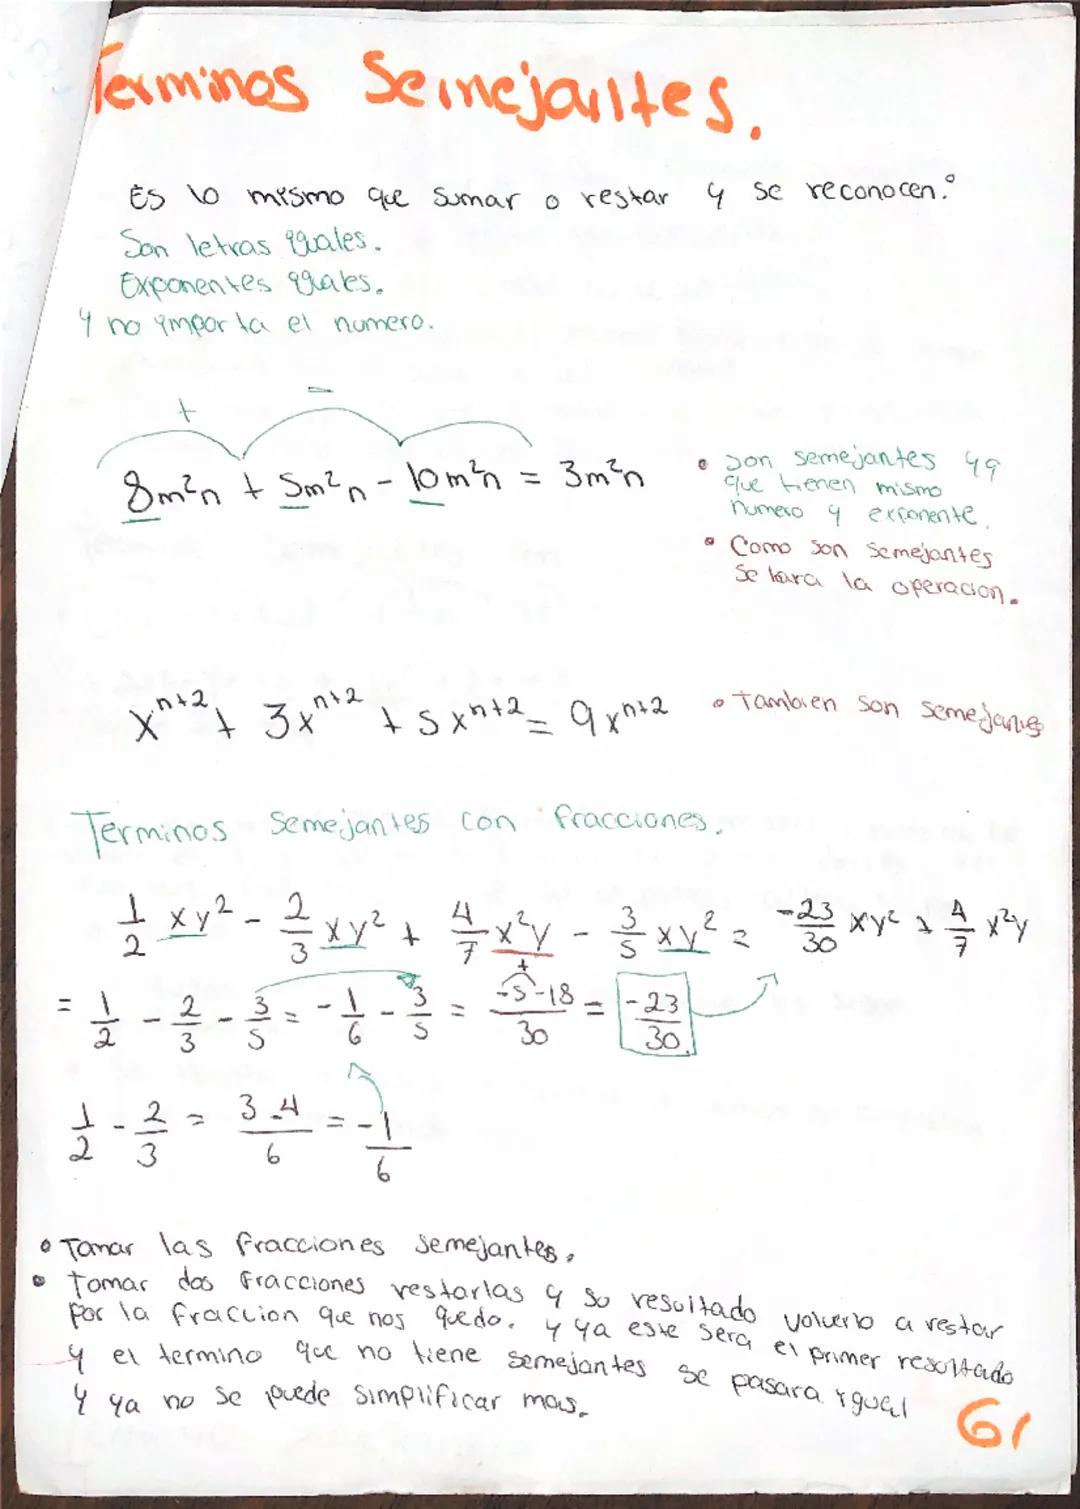 Terminos Semejantes.
Es lo mismo que sumar o restar y se reconocen:
Son letras iguales.
Exponentes iguales.
Y no importa el numero.
+ -
8m²n + 5m²n - 10m²n = 3m²n
• Son semejantes ya
que tienen mismo
numero y exponente.
• Como son semejantes
se hara la operacion.
xⁿ⁺² + 3xⁿ⁺² + 5xⁿ⁺² = 9xⁿ⁺²
• Tambien son semejantes
Terminos semejantes con fracciones.
1/2 xy² - 2/3 xy² + 4/7 x²y - 3/5 xy² = -23/30 xy² + 4/7 x²y
= 1/2 - 2/3 - 3/5 = -1/6 - 3/5 = -5-18/30 = -23/30
1/2 - 2/3 = 3-4/6 = -1/6
• Tomar las fracciones semejantes.
• Tomar dos fracciones restarlas y su resultado volverlo a restar
por la fraccion que nos quedo. y ya este sera el primer resultado
y el termino que no tiene semejantes se pasara igual
y ya no se puede simplificar mas.
61